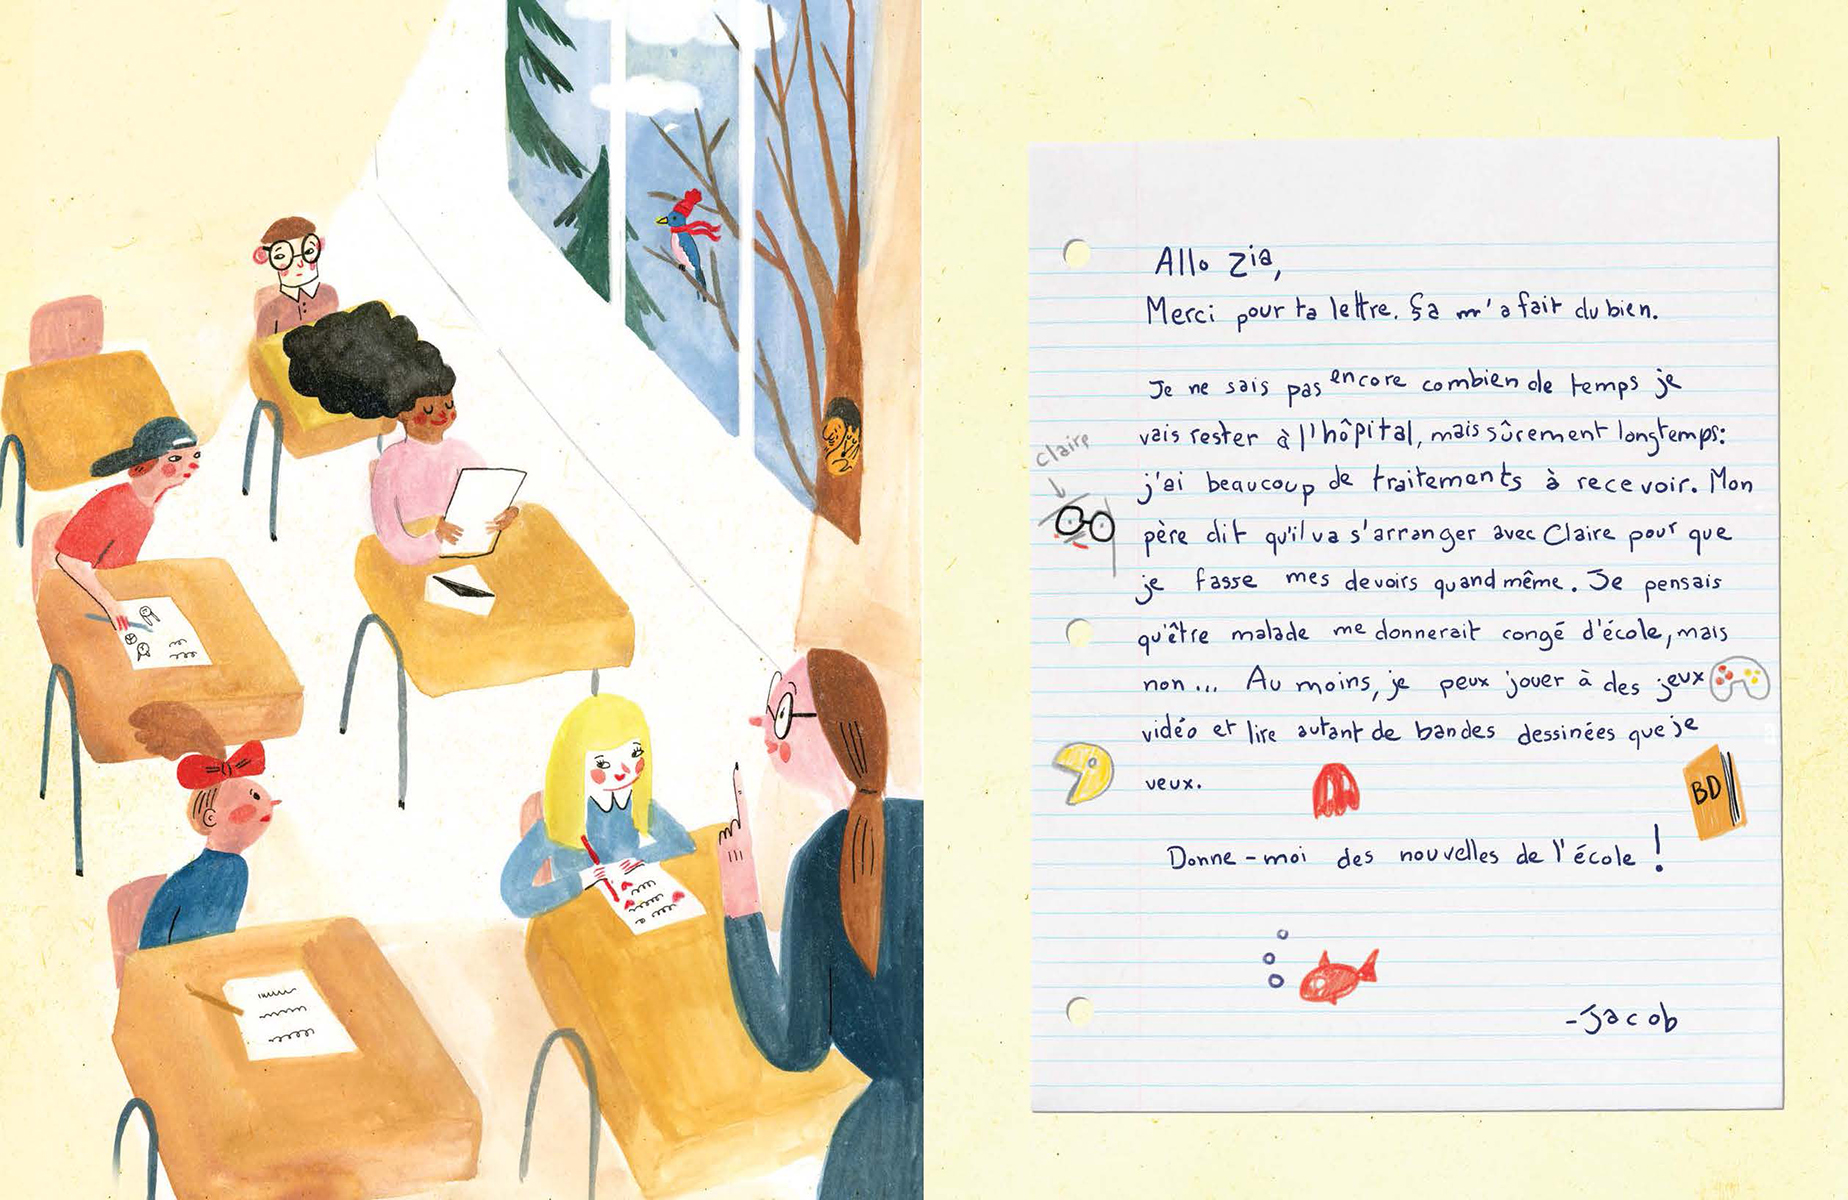 Allo Zia,
Merci pour ta lettre. Ça m'a fait du bien.
Je ne sais pas encore combien de temps je
vais rester à l'hôpital, mais sûrement longtemps:
j'ai beaucoup de traitements à recevoir. Mon
Claire
père dit qu'il va s'arranger avec Claire pour que
je fasse mes devoirs quand même. Je pensais
qu'être malade me donnerait congé d'école, mais
non... Au moins, je peux jouer à des jeux
vidéo et lire autant de bandes dessinées que je
veux.
BD
Donne-moi des nouvelles de l'école!
-Jacob